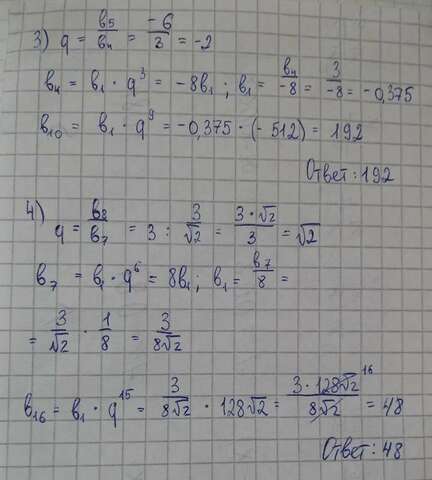 3) q = b₅/b₄ = -6/3 = -2
b₄ = b₁ · q³ = -8b₁ ; b₁ = b₄/-8 = 3/-8 = -0,375
b₁₀ = b₁ · q⁹ = -0,375 · (-512) = 192
Ответ: 192
4) q = b₈/b₇ = 3 : 3/√2 = 3·√2/3 = √2
b₇ = b₁ · q⁶ = 8b₁ ; b₁ = b₇/8 =
= 3/√2 · 1/8 = 3/8√2
b₁₆ = b₁ · q¹⁵ = 3/8√2 · 128√2 = 3·128√2/8√2 ¹⁶ = 48
Ответ: 48